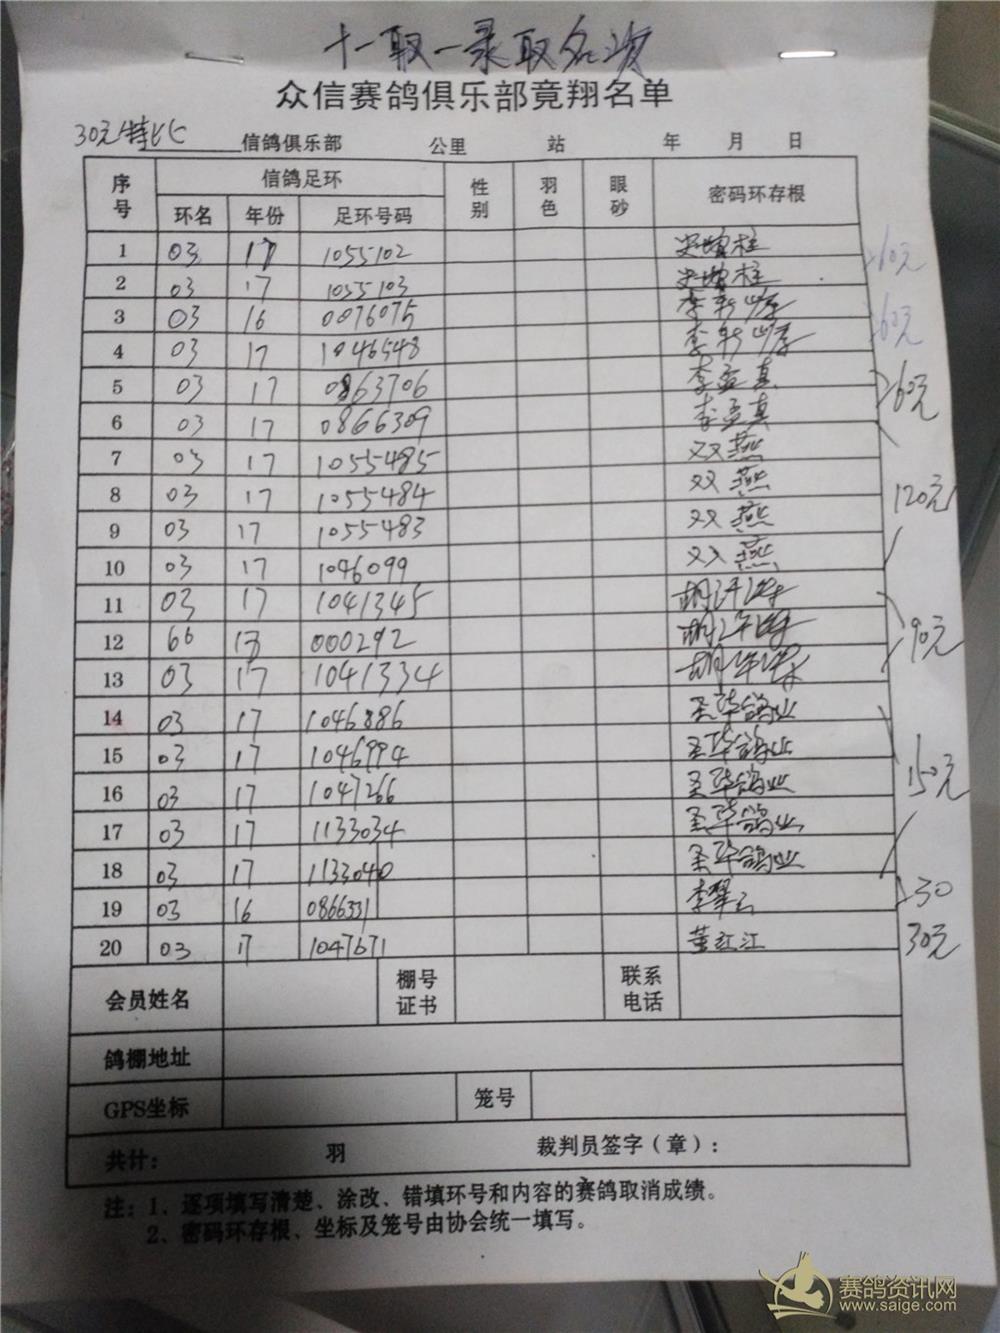 十一取一录取名次
众信赛鸽俱乐部竟翔名单
30元特比 信鸽俱乐部 公里 站 年 月 日
序号 信鸽足环 性别 羽色 眼砂 密码环存根
环名 年份 足环号码
1 03 17 1055102
2 03 17 1055103 60元
3 03 16 0876075
4 03 17 1046548 60元
5 03 17 0863706 李孟真
6 03 17 0866309 李孟真 60元
7 03 17 1055485 双燕
8 03 17 1055484 双燕
9 03 17 1055483 双燕 120元
10 03 17 1046099 双燕
11 03 17 1041345
12 66 000292 90元
13 03 17 10413334
14 03 17 1046886 圣华鸽业
15 03 17 1046994 圣华鸽业
16 03 17 1047266 圣华鸽业 150元
17 03 17 1133034 圣华鸽业
18 03 17 1133040 圣华鸽业
19 03 16 0866331 李翠云 30
20 03 17 1047671 董红江 30元
会员姓名 棚号证书 联系电话
鸽棚地址
GPS坐标 笼号
共计： 羽 裁判员签字（章）：
注：1、逐项填写清楚、涂改、错填环号和内容的赛鸽取消成绩。
2、密码环存根、坐标及笼号由协会统一填写。
赛鸽资讯网
www.saige.com